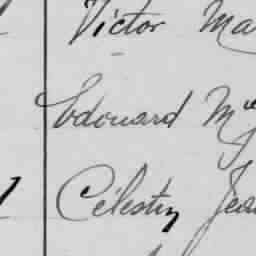 Victor Ma
Edouard M
Célestin Jea